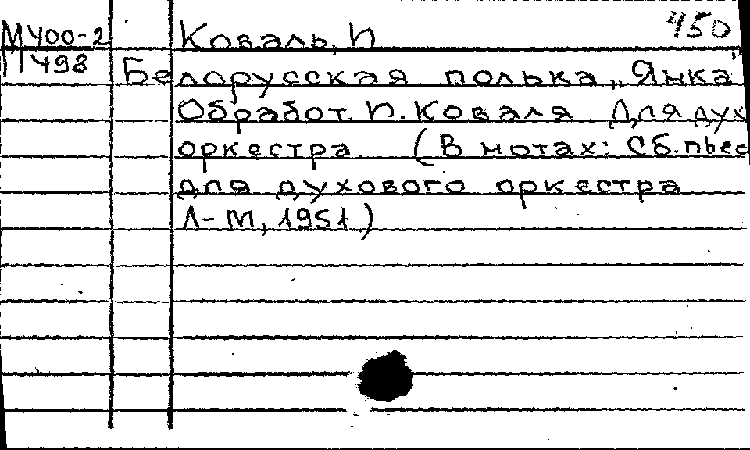 450
М400-2 Коваль, И
П498 Белорусская полька „Янка"
Обработ. И. Коваля. Для дух
оркестра (В нотах: Сб. пьес
для духового оркестра
Л-М, 1951)